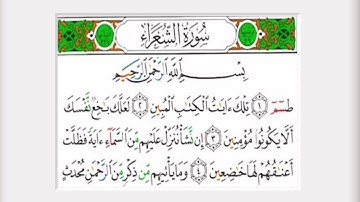 سُورَةُ الشُّعَرَاءِ
بِسْمِ اللَّهِ الرَّحْمَٰنِ الرَّحِيمِ
طسٓمٓ ١ تِلْكَ ءَايَٰتُ ٱلْكِتَٰبِ ٱلْمُبِينِ ٢ لَعَلَّكَ بَٰخِعٌ نَّفْسَكَ
أَلَّا يَكُونُوا۟ مُؤْمِنِينَ ٣ إِن نَّشَأْ نُنَزِّلْ عَلَيْهِم مِّنَ ٱلسَّمَآءِ ءَايَةً فَظَلَّتْ
أَعْنَٰقُهُمْ لَهَا خَٰضِعِينَ ٤ وَمَا يَأْتِيهِم مِّن ذِكْرٍ مِّنَ ٱلرَّحْمَٰنِ مُحْدَثٍ